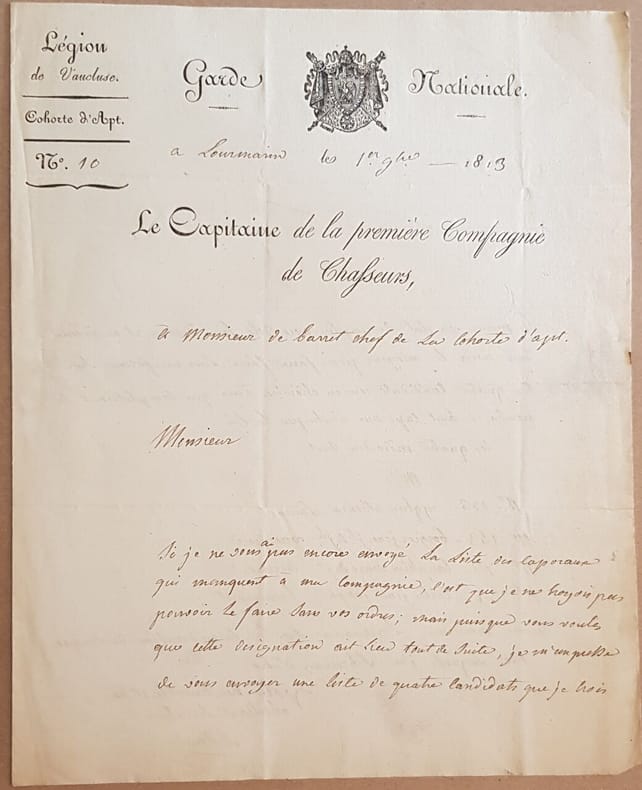 Légion
de Vaucluse.
Cohorte d'Apt.
N.º 10
Garde Nationale.
a Lourmarin les 1er 9bre — 1813
Le Capitaine de la première Compagnie
de Chasseurs,
A Monsieur de Barret chef de La Cohorte d'apt.
Monsieur
Si je ne vous ai pas encore envoyé La Liste des Caporaux
qui manquent à ma Compagnie, c'est que je ne croyois pas
pouvoir le faire sans vos ordres; mais puisque vous voulés
que cette désignation ait Lieu tout de suite, je m'empresse
de vous envoyer une liste de quatre Candidats que je crois